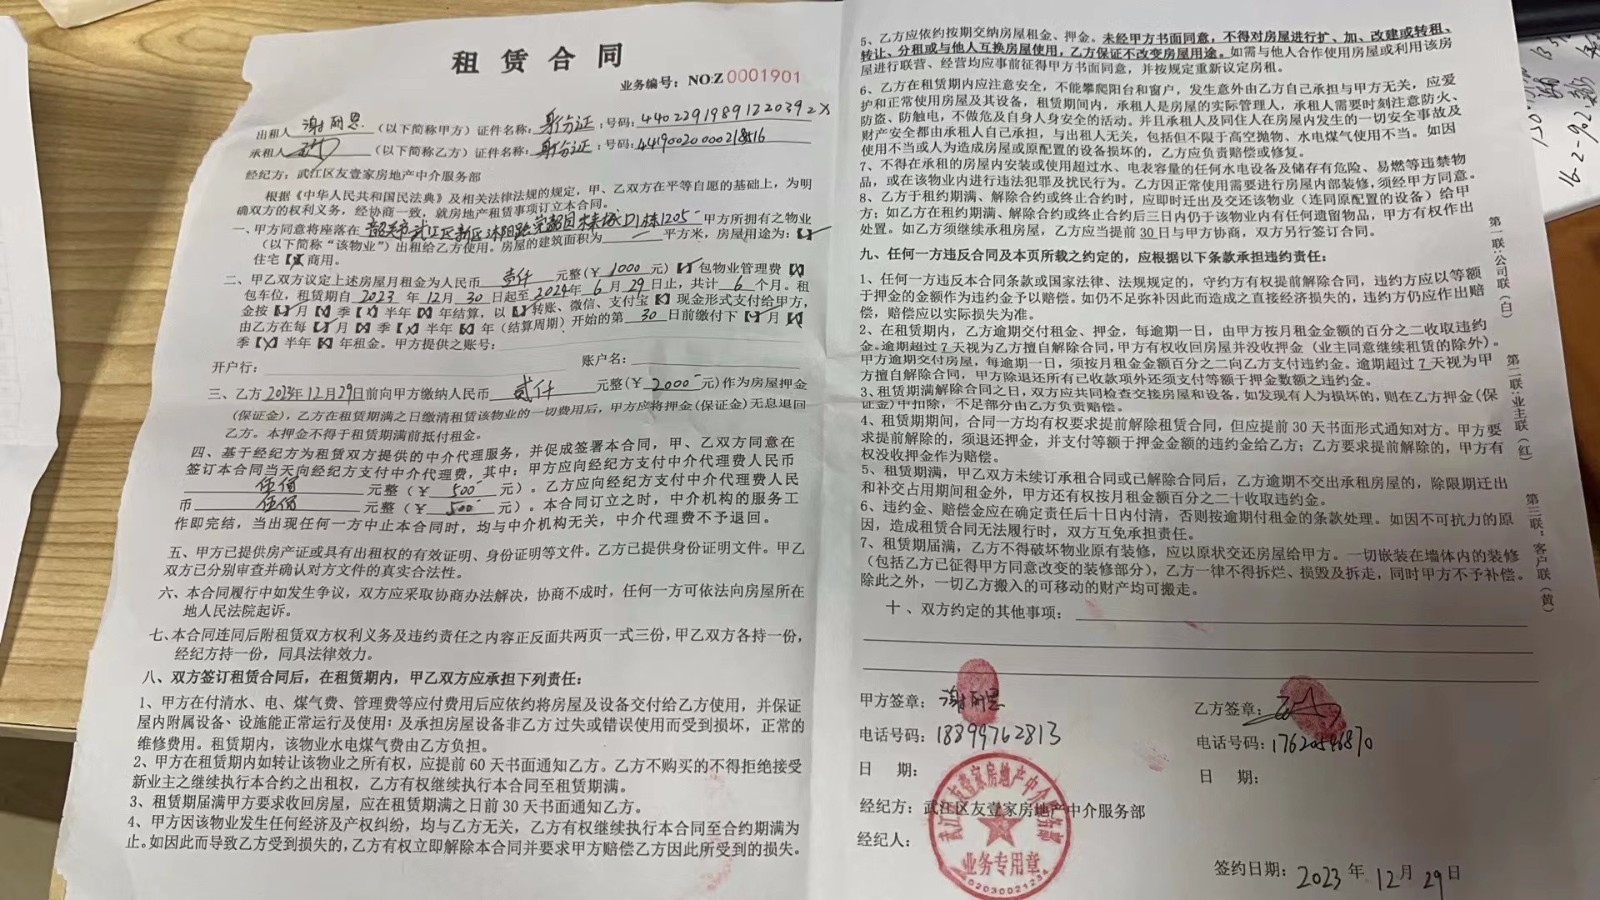 租赁合同
业务编号：NO:Z0001901
出租人 谢丽恩 （以下简称甲方）证件名称：身份证：号码：
承租人 （以下简称乙方）证件名称：身份证：号码：
经纪方：武江区友壹家房地产中介服务部
根据《中华人民共和国民法典》及相关法律法规的规定，甲、乙双方在平等自愿的基础上，为明
确双方的权利义务，经协商一致，就房地产租赁事项订立本合同。
一、甲方同意将座落在 韶关市武江区新区沐阳路 D1栋1205 甲方所拥有之物业
（以下简称“该物业”）出租给乙方使用。房屋的建筑面积为 平方米，房屋用途为：【✓】
住宅【×】商用。
二、甲乙双方议定上述房屋月租金为人民币 壹仟 元整（¥ 1000 元）【✓】包物业管理费【×】
包车位，租赁期自 2023 年 12 月 30 日起至 2024年 6 月 29 日止，共计 6 个月。租
金按【✓】月【×】季【×】半年【×】年结算，以【✓】转账、微信、支付宝【×】现金形式支付给甲方，
由乙方在每【✓】月【×】季【×】半年【×】年（结算周期）开始的第 30 日前缴付下【✓】月【×】
季【×】半年【×】年租金。甲方提供之账号：
开户行： 账户名：
三、乙方 2023年12月29日前向甲方缴纳人民币 贰仟 元整（¥ 2000 元）作为房屋押金
（保证金），乙方在租赁期满之日缴清租赁该物业的一切费用后，甲方应将押金（保证金）无息退回
乙方。本押金不得于租赁期满前抵付租金。
四、基于经纪方为租赁双方提供的中介代理服务，并促成签署本合同，甲、乙双方同意在
签订本合同当天向经纪方支付中介代理费，其中：甲方应向经纪方支付中介代理费人民币
伍佰 元整（¥ 500 元）。乙方应向经纪方支付中介代理费人民
币 伍佰 元整（¥ 500 元）。本合同订立之时，中介机构的服务工
作即完结，当出现任何一方中止本合同时，均与中介机构无关，中介代理费不予退回。
五、甲方已提供房产证或具有出租权的有效证明、身份证明等文件。乙方已提供身份证明文件。甲乙
双方已分别审查并确认对方文件的真实合法性。
六、本合同履行中如发生争议，双方应采取协商办法解决，协商不成时，任何一方可依法向房屋所在
地人民法院起诉。
七、本合同连同后附租赁双方权利义务及违约责任之内容正反面共两页一式三份，甲乙双方各持一份，
经纪方持一份，同具法律效力。
八、双方签订租赁合同后，在租赁期内，甲乙双方应承担下列责任：
1、甲方在付清水、电、煤气费、管理费等应付费用后应依约将房屋及设备交付给乙方使用，并保证
屋内附属设备、设施能正常运行及使用；及承担房屋设备非乙方过失或错误使用而受到损坏，正常的
维修费用。租赁期内，该物业水电煤气费由乙方负担。
2、甲方在租赁期内如转让该物业之所有权，应提前 60 天书面通知乙方。乙方不购买的不得拒绝接受
新业主之继续执行本合约之出租权，乙方有权继续执行本合同至租赁期满。
3、租赁期届满甲方要求收回房屋，应在租赁期满之日前 30 天书面通知乙方。
4、甲方因该物业发生任何经济及产权纠纷，均与乙方无关，乙方有权继续执行本合同至合约期满为
止。如因此而导致乙方受到损失的，乙方有权立即解除本合同并要求甲方赔偿乙方因此所受到的损失。
5、乙方应依约按期交纳房屋租金、押金。未经甲方书面同意，不得对房屋进行扩、加、改建或转租、
转让、分租或与他人互换房屋使用，乙方保证不改变房屋用途。如需与他人合作使用房屋或利用该房
屋进行联营、经营均应事前征得甲方书面同意，并按规定重新议定房租。
6、乙方在租赁期内应注意安全，不能攀爬阳台和窗户，发生意外由乙方自己承担与甲方无关，应爱
护和正常使用房屋及其设备，租赁期间内，承租人是房屋的实际管理人，承租人需要时刻注意防火、
防盗、防触电，不做危及自身人身安全的活动。并且承租人及同住人在房屋内发生的一切安全事故及
财产安全都由承租人自己承担，与出租人无关，包括但不限于高空抛物、水电煤气使用不当。如因
使用不当或人为造成房屋或原配置的设备损坏的，乙方应负责赔偿或修复。
7、不得在承租的房屋内安装或使用超过水、电表容量的任何水电设备及储存有危险、易燃等违禁物
品，或在该物业内进行违法犯罪及扰民行为。乙方因正常使用需要进行房屋内部装修，须经甲方同意。
8、乙方于租约期满、解除合约或终止合约时，应即时迁出及交还该物业（连同原配置的设备）给甲
方；如乙方在租约期满、解除合约或终止合约后三日内仍于该物业内有任何遗留物品，甲方有权作出
处置。如乙方须继续承租房屋，乙方应当提前 30 日与甲方协商，双方另行签订合同。
九、任何一方违反合同及本页所载之约定的，应根据以下条款承担违约责任：
1、任何一方违反本合同条款或国家法律、法规规定的，守约方有权提前解除合同，违约方应以等额
于押金的金额作为违约金予以赔偿。如仍不足弥补因此而造成之直接经济损失的，违约方仍应作出赔
偿，赔偿应以实际损失为准。
2、在租赁期内，乙方逾期交付租金、押金，每逾期一日，由甲方按月租金金额的百分之二收取违约
金。逾期超过 7 天视为乙方擅自解除合同，甲方有权收回房屋并没收押金（业主同意继续租赁的除外）。
甲方逾期交付房屋，每逾期一日，须按月租金金额百分之二向乙方支付违约金。逾期超过 7 天视为甲
方擅自解除合同，甲方除退还所有已收款项外还须支付等额于押金数额之违约金。
3、租赁期满解除合同之日，双方应共同检查交接房屋和设备，如发现有人为损坏的，则在乙方押金（保
证金）中扣除，不足部分由乙方负责赔偿。
4、租赁期期间，合同一方均有权要求提前解除租赁合同，但应提前 30 天书面形式通知对方。甲方要
求提前解除的，须退还押金，并支付等额于押金金额的违约金给乙方；乙方要求提前解除的，甲方有
权没收押金作为赔偿。
5、租赁期满，甲乙双方未续订承租合同或已解除合同后，乙方逾期不交出承租房屋的，除限期迁出
和补交占用期间租金外，甲方还有权按月租金额百分之二十收取违约金。
6、违约金、赔偿金应在确定责任后十日内付清，否则按逾期付租金的条款处理。如因不可抗力的原
因，造成租赁合同无法履行时，双方互免承担责任。
7、租赁期届满，乙方不得破坏物业原有装修，应以原状交还房屋给甲方。一切嵌装在墙体内的装修
（包括乙方已征得甲方同意改变的装修部分），乙方一律不得拆烂、损毁及拆走，同时甲方不予补偿。
除此之外，一切乙方搬入的可移动的财产均可搬走。
十、双方约定的其他事项：
甲方签章：谢丽恩
乙方签章：
电话号码：18899762813
电话号码：
日 期：
日 期：
经纪方：武江区友壹家房地产中介服务部
经纪人：
签约日期：2023 年 12 月 29 日
武江区友壹家房地产中介服务部
业务专用章
第一联：公司联（白）
第二联：业主联（红）
第三联：客户联（黄）